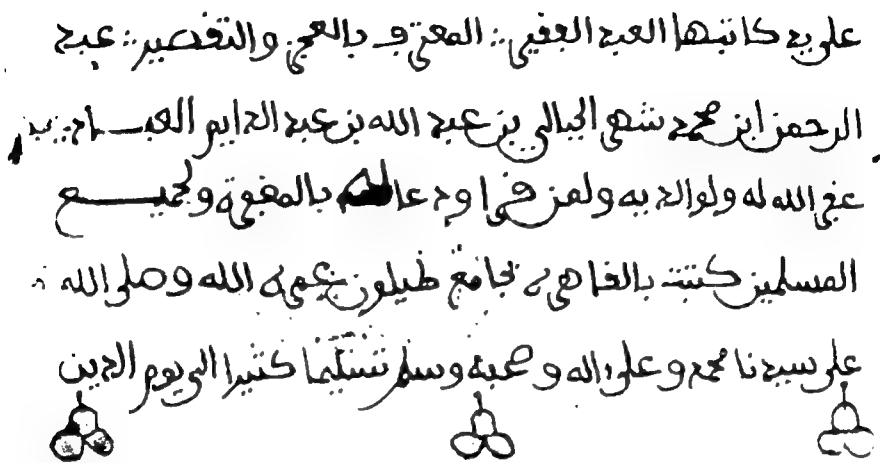 على يد كاتبها العبد الفقير المعترف بالعجز والتقصير عبد
الرحمن ابن محمد شهر الجبالي بن عبد الله بن عبد الدايم
غفر الله له ولوالديه ولمن قرا ودعا لهم بالمغفرة ولجميع
المسلمين كتبت بالقاهرة بجامع طيلون بعمره الله وصلى الله
على سيدنا محمد وعلى اله وصحبه وسلم تسليما كثيرا الى يوم الدين